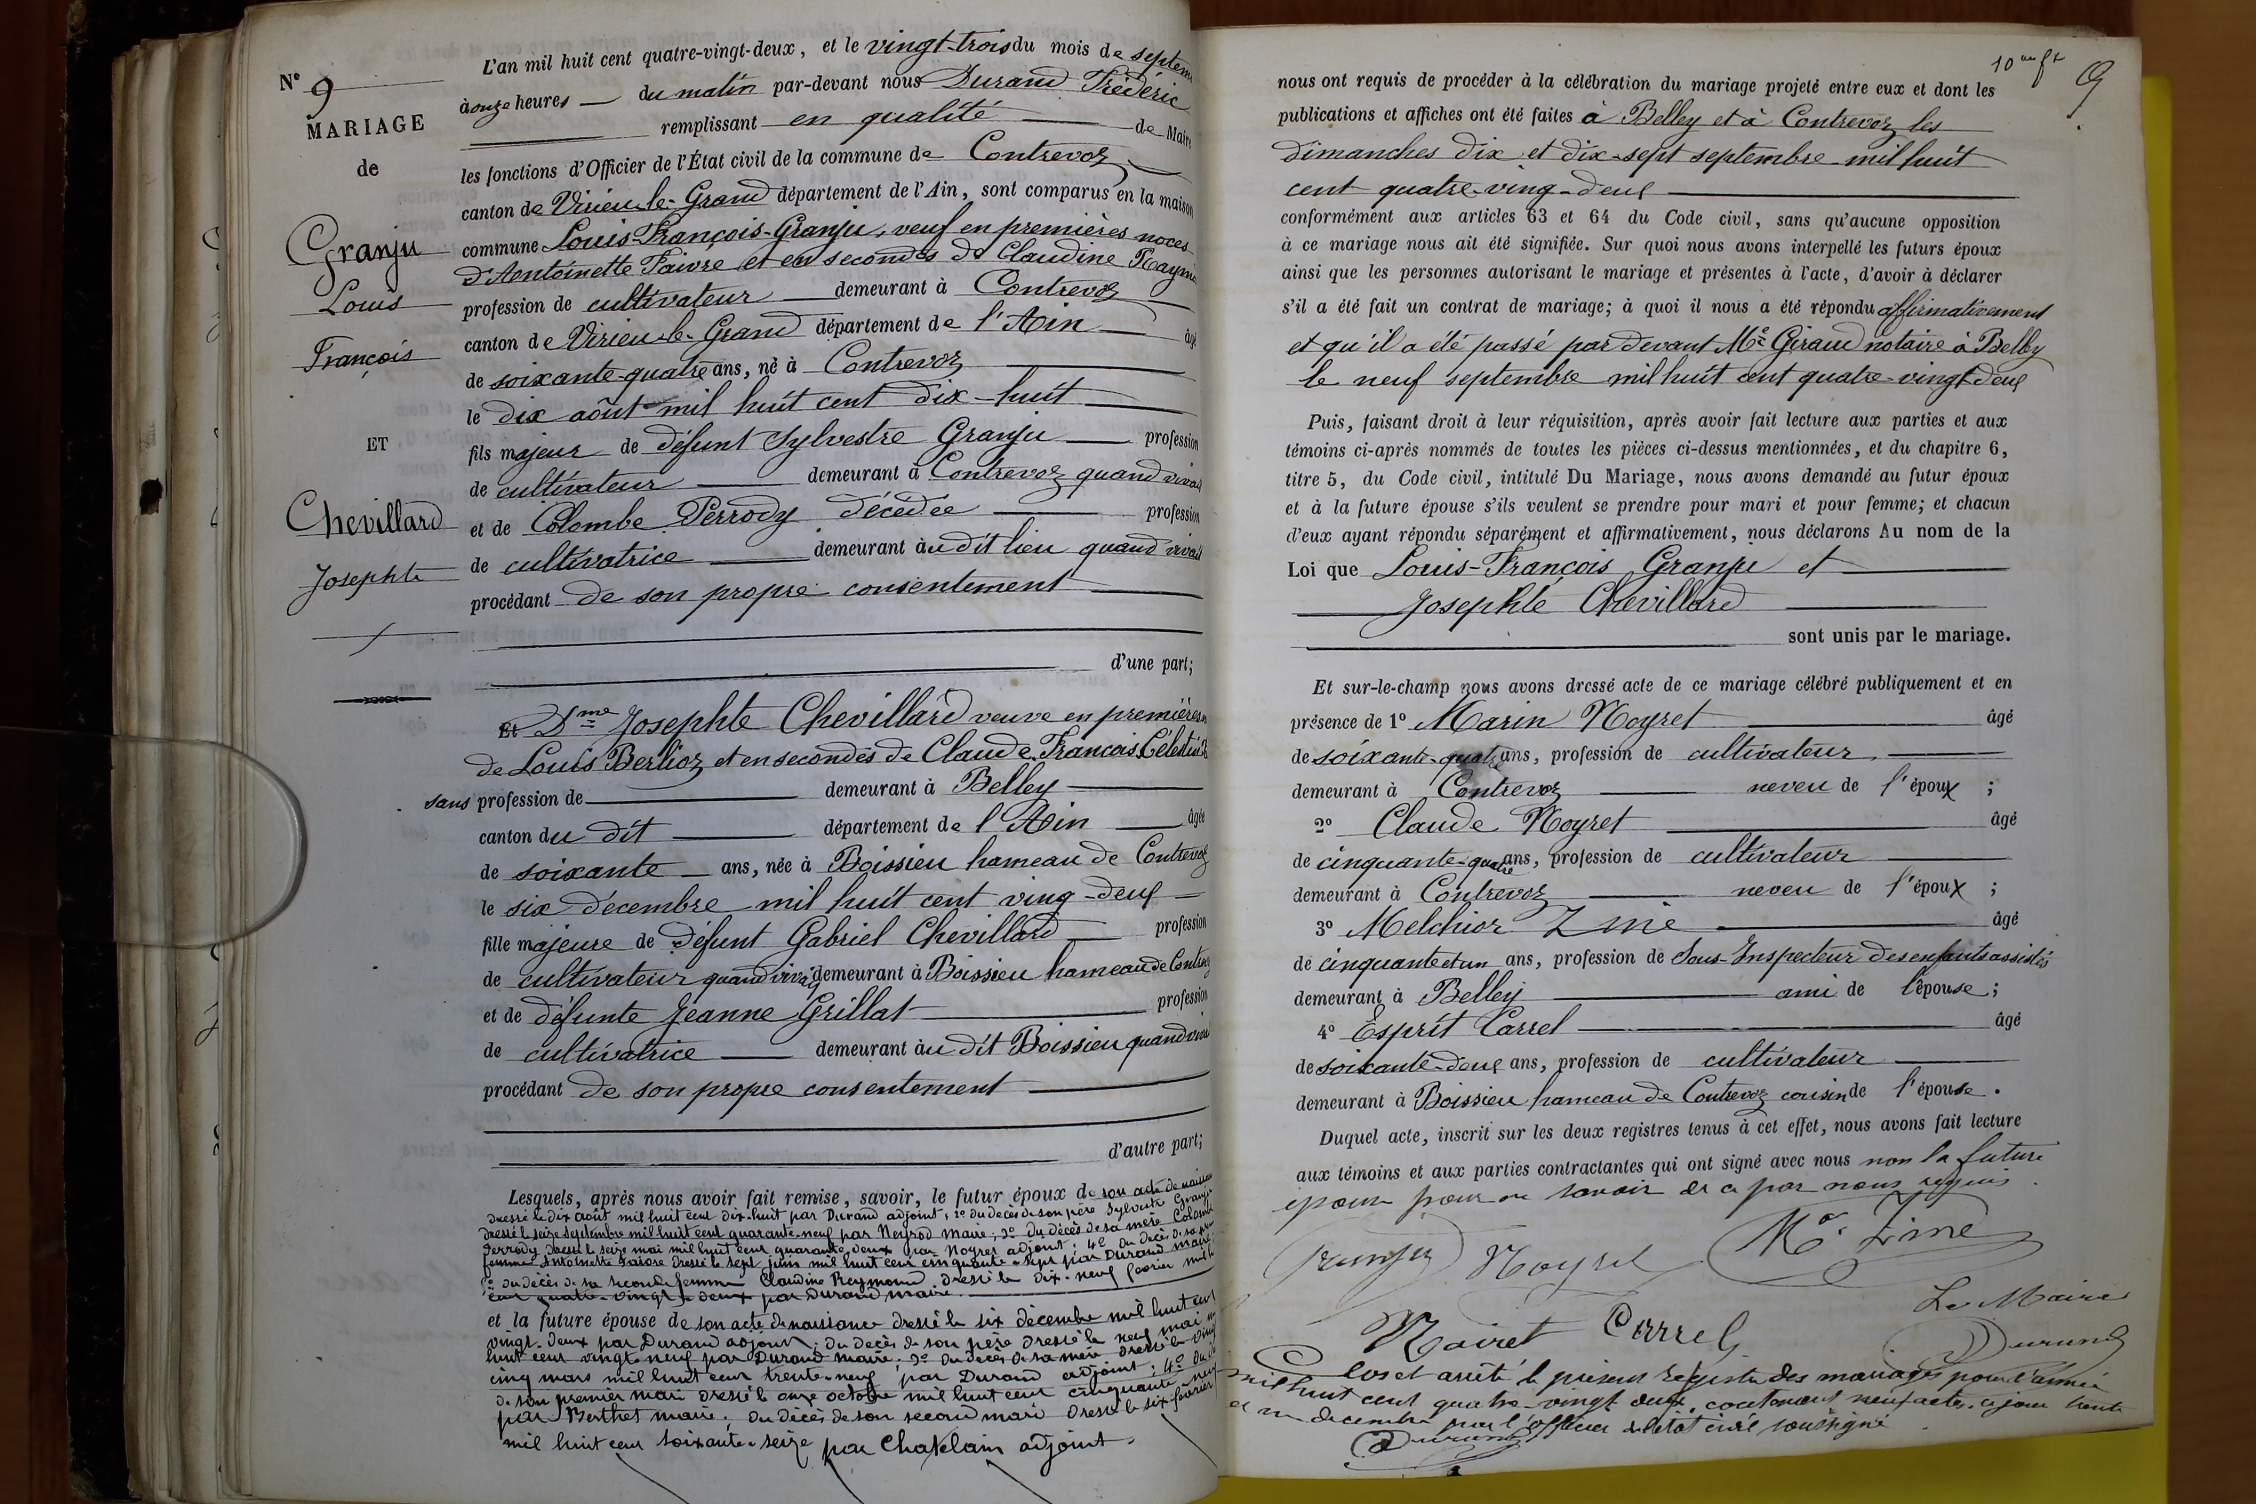 N° 9
MARIAGE
de
Granju
Louis
François
ET
Chevillard
Josephte
L'an mil huit cent quatre-vingt-deux, et le vingt-trois du mois de septem
à onze heures du matin par-devant nous Durand Frédéric
remplissant en qualité de Maire
les fonctions d'Officier de l'État civil de la commune de Contrevoz
canton de Virieu-le-Grand département de l'Ain, sont comparus en la maison
commune Louis-François-Granju, veuf en premières noces
d'Antoinette Faivre et en secondes de Claudine Raymo
profession de cultivateur demeurant à Contrevoz
canton de Virieu-le-Grand département de l'Ain âgé
de soixante-quatre ans, né à Contrevoz
le dix août mil huit cent dix-huit
fils majeur de défunt Sylvestre Granju profession
de cultivateur demeurant à Contrevoz quand vivait
et de Colombe Perrody décédée profession
de cultivatrice demeurant au dit lieu quand vivait
procédant de son propre consentement
d'une part;
Et Dme Josephte Chevillard veuve en premières n
de Louis Berlioz et en secondes de Claude François Célestin
sans profession de demeurant à Belley
canton du dit département de l'Ain âgée
de soixante ans, née à Boissieu hameau de Contrevoz
le six décembre mil huit cent ving-deux
fille majeure de défunt Gabriel Chevillard profession
de cultivateur quand vivait demeurant à Boissieu hameau de Contrevoz
et de défunte Jeanne Grillat profession
de cultivatrice demeurant au dit Boissieu quand vivai
procédant de son propre consentement
d'autre part;
Lesquels, après nous avoir fait remise, savoir, le futur époux de son acte de naissan
dressé le dix août mil huit cent dix-huit par Durand adjoint; 2° du décès de son père Sylvestre Granju
dressé le seize septembre mil huit cent quarante-neuf par Neyrod maire; 3° du décès de sa mère Colombe
Perrody dressé le seize mai mil huit cent quarante-deux par Noyret adjoint; 4° du décès de sa
femme Antoinette Faivre dressé le sept juin mil huit cent cinquante-sept par Durand maire
5° du décès de sa seconde femme Claudine Reymond dressé le dix-neuf février mil h
cent quatre-vingt deux par Durand maire.
et la future épouse de son acte de naissance dressé le six décembre mil huit cent
vingt-deux par Durand adjoint; du décès de son père dressé le neuf mai m
huit cent vingt-neuf par Durand maire; 3° du décès de sa mère dressé le vingt
cinq mars mil huit cent trente-neuf par Durand adjoint; 4° du
de son premier mari dressé le onze octobre mil huit cent cinquante-neuf
par Berthet maire. du décès de son second mari dressé le six février
mil huit cent soixante-seize par Chatelain adjoint.
9
nous ont requis de procéder à la célébration du mariage projeté entre eux et dont les
publications et affiches ont été faites à Belley et à Contrevoz les
dimanches dix et dix-sept septembre mil huit
cent quatre-ving-deux
conformément aux articles 63 et 64 du Code civil, sans qu'aucune opposition
à ce mariage nous ait été signifiée. Sur quoi nous avons interpellé les futurs époux
ainsi que les personnes autorisant le mariage et présentes à l'acte, d'avoir à déclarer
s'il a été fait un contrat de mariage; à quoi il nous a été répondu affirmativement
et qu'il a été passé par devant Me Giraud notaire à Belley
le neuf septembre mil huit cent quatre-vingt-deux
Puis, faisant droit à leur réquisition, après avoir fait lecture aux parties et aux
témoins ci-après nommés de toutes les pièces ci-dessus mentionnées, et du chapitre 6,
titre 5, du Code civil, intitulé Du Mariage, nous avons demandé au futur époux
et à la future épouse s'ils veulent se prendre pour mari et pour femme; et chacun
d'eux ayant répondu séparément et affirmativement, nous déclarons Au nom de la
Loi que Louis-François Granju et
Josephte Chevillard
sont unis par le mariage.
Et sur-le-champ nous avons dressé acte de ce mariage célébré publiquement et en
présence de 1° Marin Noyret âgé
de soixante-quatre ans, profession de cultivateur
demeurant à Contrevoz neveu de l'époux ;
2° Claude Noyret âgé
de cinquante-quatre ans, profession de cultivateur
demeurant à Contrevoz neveu de l'époux ;
3° Melchior Zine âgé
de cinquante et un ans, profession de Sous-Inspecteur des enfants assistés
demeurant à Belley ami de l'épouse ;
4° Esprit Carrel âgé
de soixante-deux ans, profession de cultivateur
demeurant à Boissieu hameau de Contrevoz cousin de l'épouse.
Duquel acte, inscrit sur les deux registres tenus à cet effet, nous avons fait lecture
aux témoins et aux parties contractantes qui ont signé avec nous non la future
épouse pour ne savoir de ce par nous requis.
Granju Noyret Mr. Zine
Le Maire
Noiret Carrel Durand
Clos et arrêté le présent registre des mariages pour l'année
mil huit cent quatre-vingt deux, contenant neuf actes, ce jour trente
et un decembre par l'officier de l'état civil soussigné
Durand